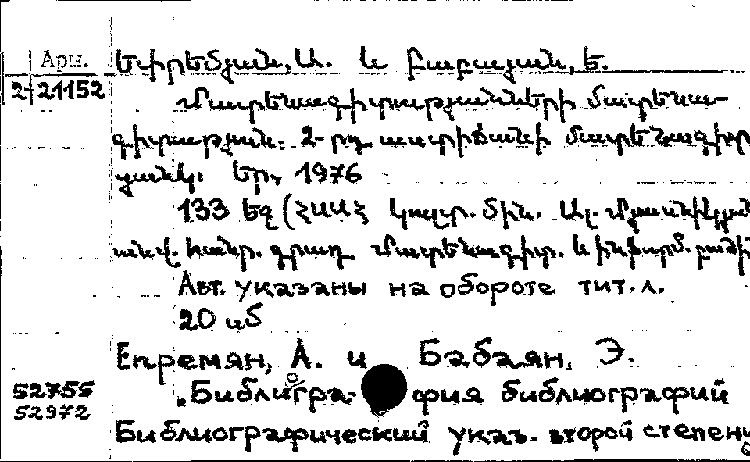 Арм. Եփրեմյան, Ա. և Բաբայան, Ե.
2-21152
Մատենագիտությունների մատենա-
գիտություն. 2-րդ աստիճանի մատենագիտ
ցանկ. Եր., 1976
133 եջ (ՀՍՍՀ կուլտ. մին. Ալ. Մյասնիկյան
անվ. հանր. գրադ. Մատենագիտ. և ինֆորմ. բաժին
Авт. указаны на обороте тит. л.
20 цб
Епремян, А. и Бабаян, Э.
52755 „Библиогра- фия библиографий
52972
Библиографический указ. второй степени